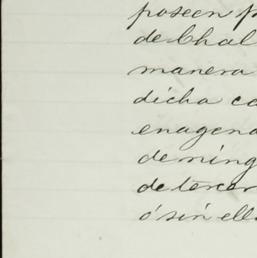 poseen p
de Chal
manera
dicha co
enagena
de ning
de tercer
ó sin ell